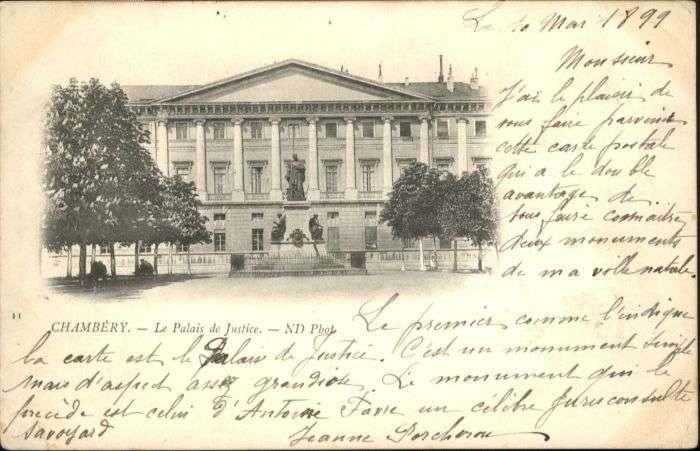 Le 10 Mai 1899
Monsieur
J'ai le plaisir de
vous faire parvenir
cette carte postale
qui a le double
avantage de
vous faire connaitre
deux monuments
de ma ville natale.
11
CHAMBÉRY. — Le Palais de Justice. — ND Phot.
Le premier comme l'indique
la carte est le Palais de Justice. C'est un monument simple
mais d'aspect assez grandiose. Le monument qui le
précède est celui d'Antoine Favre un célèbre Jurisconsulte
Savoyard
Jeanne